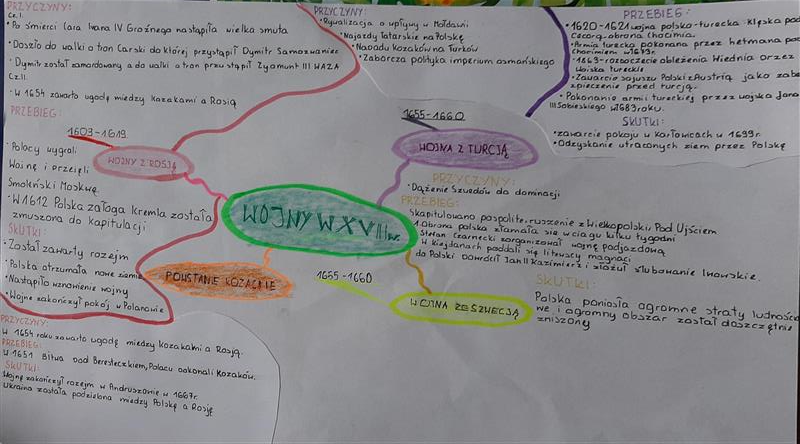 PRZYCZYNY:
Cz. I.
• Po śmierci Cara Iwana IV Groźnego nastąpiła wielka smuta
• Doszło do walki o tron Carski do której przystąpił Dymitr Samozwaniec
• Dymitr został zamordowany a do walki o tron przystąpił Zygmunt III WAZA
Cz. II.
• W 1654 zawarto ugodę między Kozakami a Rosją
PRZEBIEG:
1609-1619
WOJNY Z ROSJĄ
• Polacy wygrali
Wojnę i przejęli
Smoleńsk i Moskwę
• W 1612 Polska załoga kremla została
zmuszona do kapitulacji
SKUTKI:
• Został zawarty rozejm
• Polska otrzymała nowe ziemie
• Nastąpiło wznowienie wojny
• Wojnę zakończył pokój w Polanowie
PRZYCZYNY:
W 1654 roku zawarto ugodę między Kozakami a Rosją.
PRZEBIEG:
W 1651 Bitwa pod Beresteczkiem, Polacy pokonali Kozaków.
SKUTKI:
Wojnę zakończył rozejm w Andruszowie w 1667r.
Ukraina została podzielona między Polskę a Rosję
POWSTANIE KOZACKIE
WOJNY W XVII w.
PRZYCZYNY:
• Rywalizacja o wpływy w Mołdawii
• Najazdy Tatarskie na Polskę
• Napady Kozaków na Turków
• Zaborcza polityka imperium osmańskiego
1655-1660
WOJNA Z TURCJĄ
PRZEBIEG:
• 1620-1621 wojna polsko-turecka Klęska pod
Cecorą, obrona chocimia.
• Armia turecka pokonana przez hetmana pod
Chocimiem w 1673r.
rozpoczęcie oblężenia Wiednia przez
Wojska tureckie
• Zawarcie sojuszu Polski z Austrią jako zabe-
zpieczenie przed turcją.
• Pokonanie armii tureckiej przez wojska Jana
III Sobieskiego w 1683 roku.
SKUTKI:
• zawarcie pokoju w Karłowicach w 1699r.
• Odzyskanie utraconych ziem przez Polskę
PRZYCZYNY:
• Dążenie Szwedów do dominacji
PRZEBIEG:
Skapitulowano pospolite ruszenie z Wielkopolski, Pod Ujściem
1. Obrona polska złamała się w ciągu kilku tygodni
Stefan Czarnecki zorganizował wojnę podjazdową
W Kiejdanach poddali się litewscy magnaci
do Polski powrócił Jan II Kazimierz i złożył ślubowanie lwowskie.
1655-1660
WOJNA ZE SZWECJĄ
SKUTKI:
Polska poniosła ogromne straty ludnościo
we i ogromny obszar został doszczętnie
zniszczony